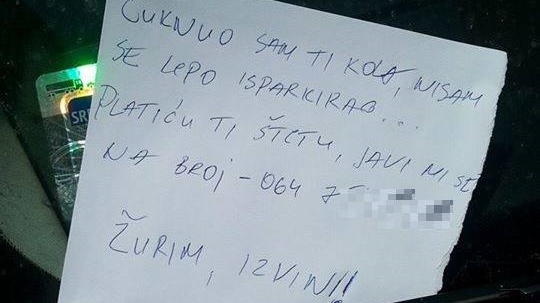 ČUKNUO SAM TI KOLA, NISAM
SE LEPO ISPARKIRAO...
PLATIĆU TI ŠTETU, JAVI MI SE
NA BROJ - 064 7
ŽURIM, IZVINI!!
SR